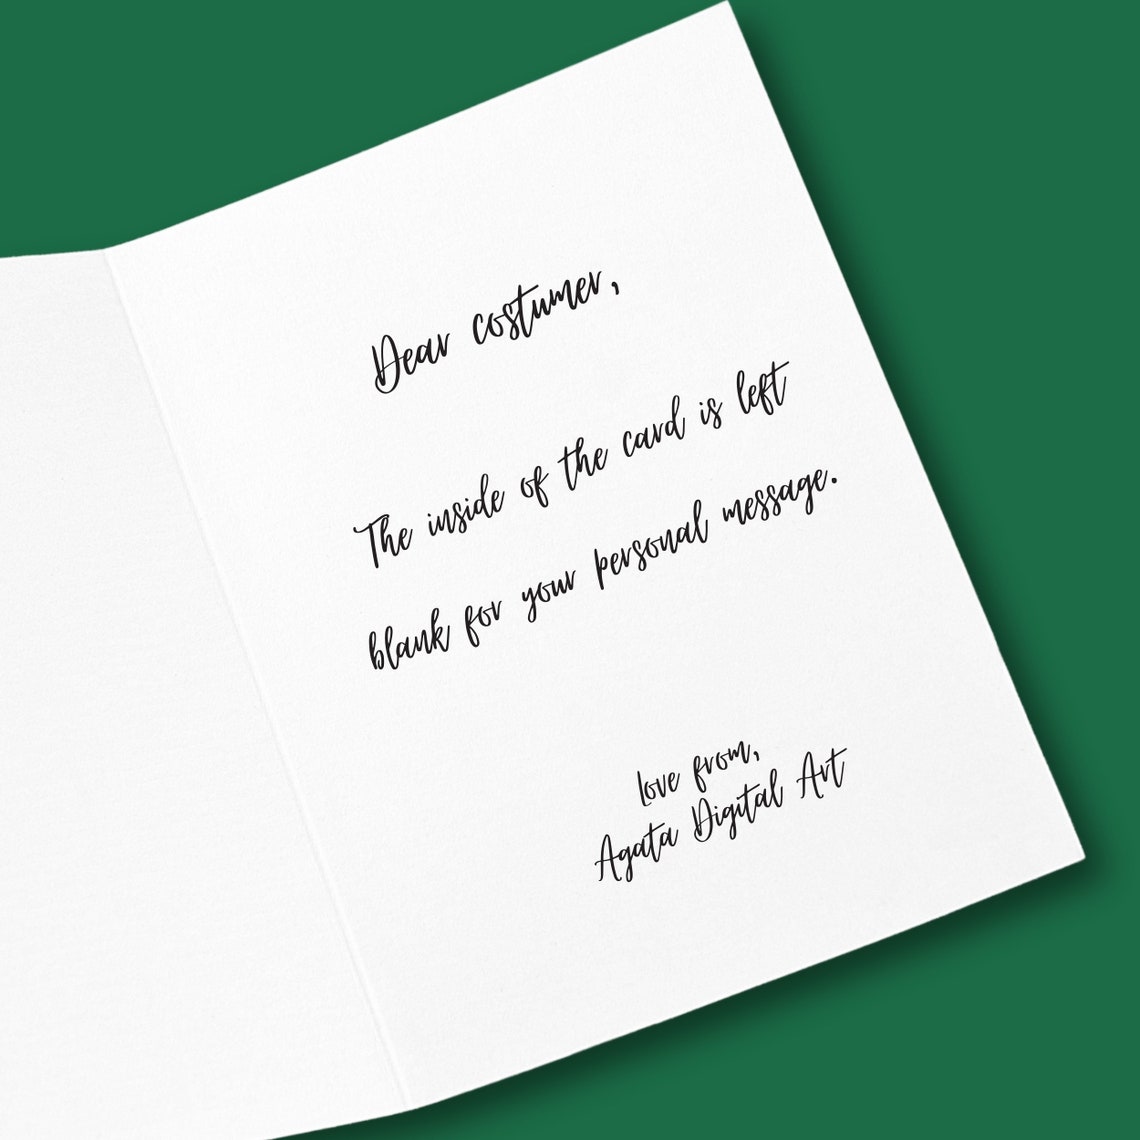 Dear costumer,
The inside of the card is left
blank for your personal message.
Love from,
Agata Digital Art